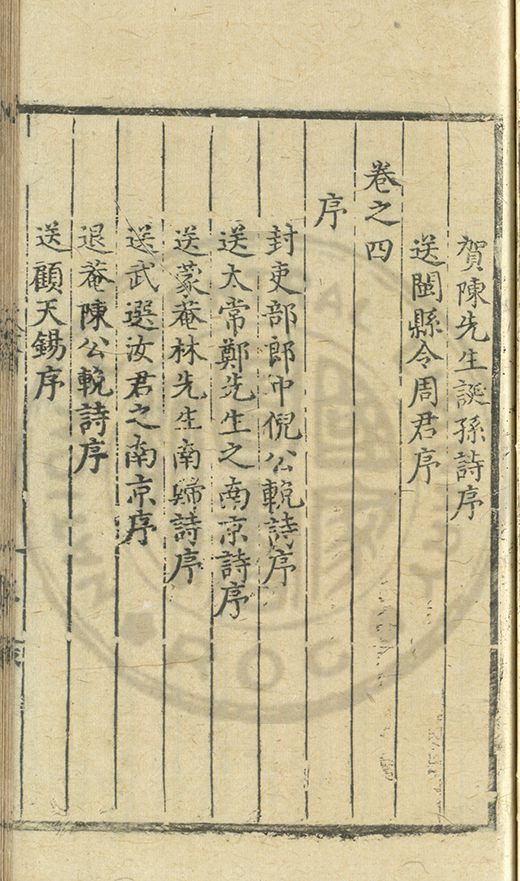 賀陳先生誕孫詩序
送閩縣令周君序
卷之四
序
封吏部郎中倪公輓詩序
送太常鄭先生之南京詩序
送蒙菴林先生南歸詩序
送武選汝君之南京序
退菴陳公輓詩序
送顧天錫序